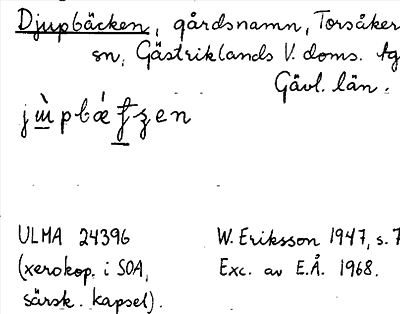 Djupbäcken, gårdsnamn, Torsåker
sn, Gästriklands V. doms. tg
Gävl. län.
ULMA 24396
(xerokop. i SOA,
särsk. kapsel).
W. Eriksson 1947, s. 7
Exc. av E.Å. 1968.